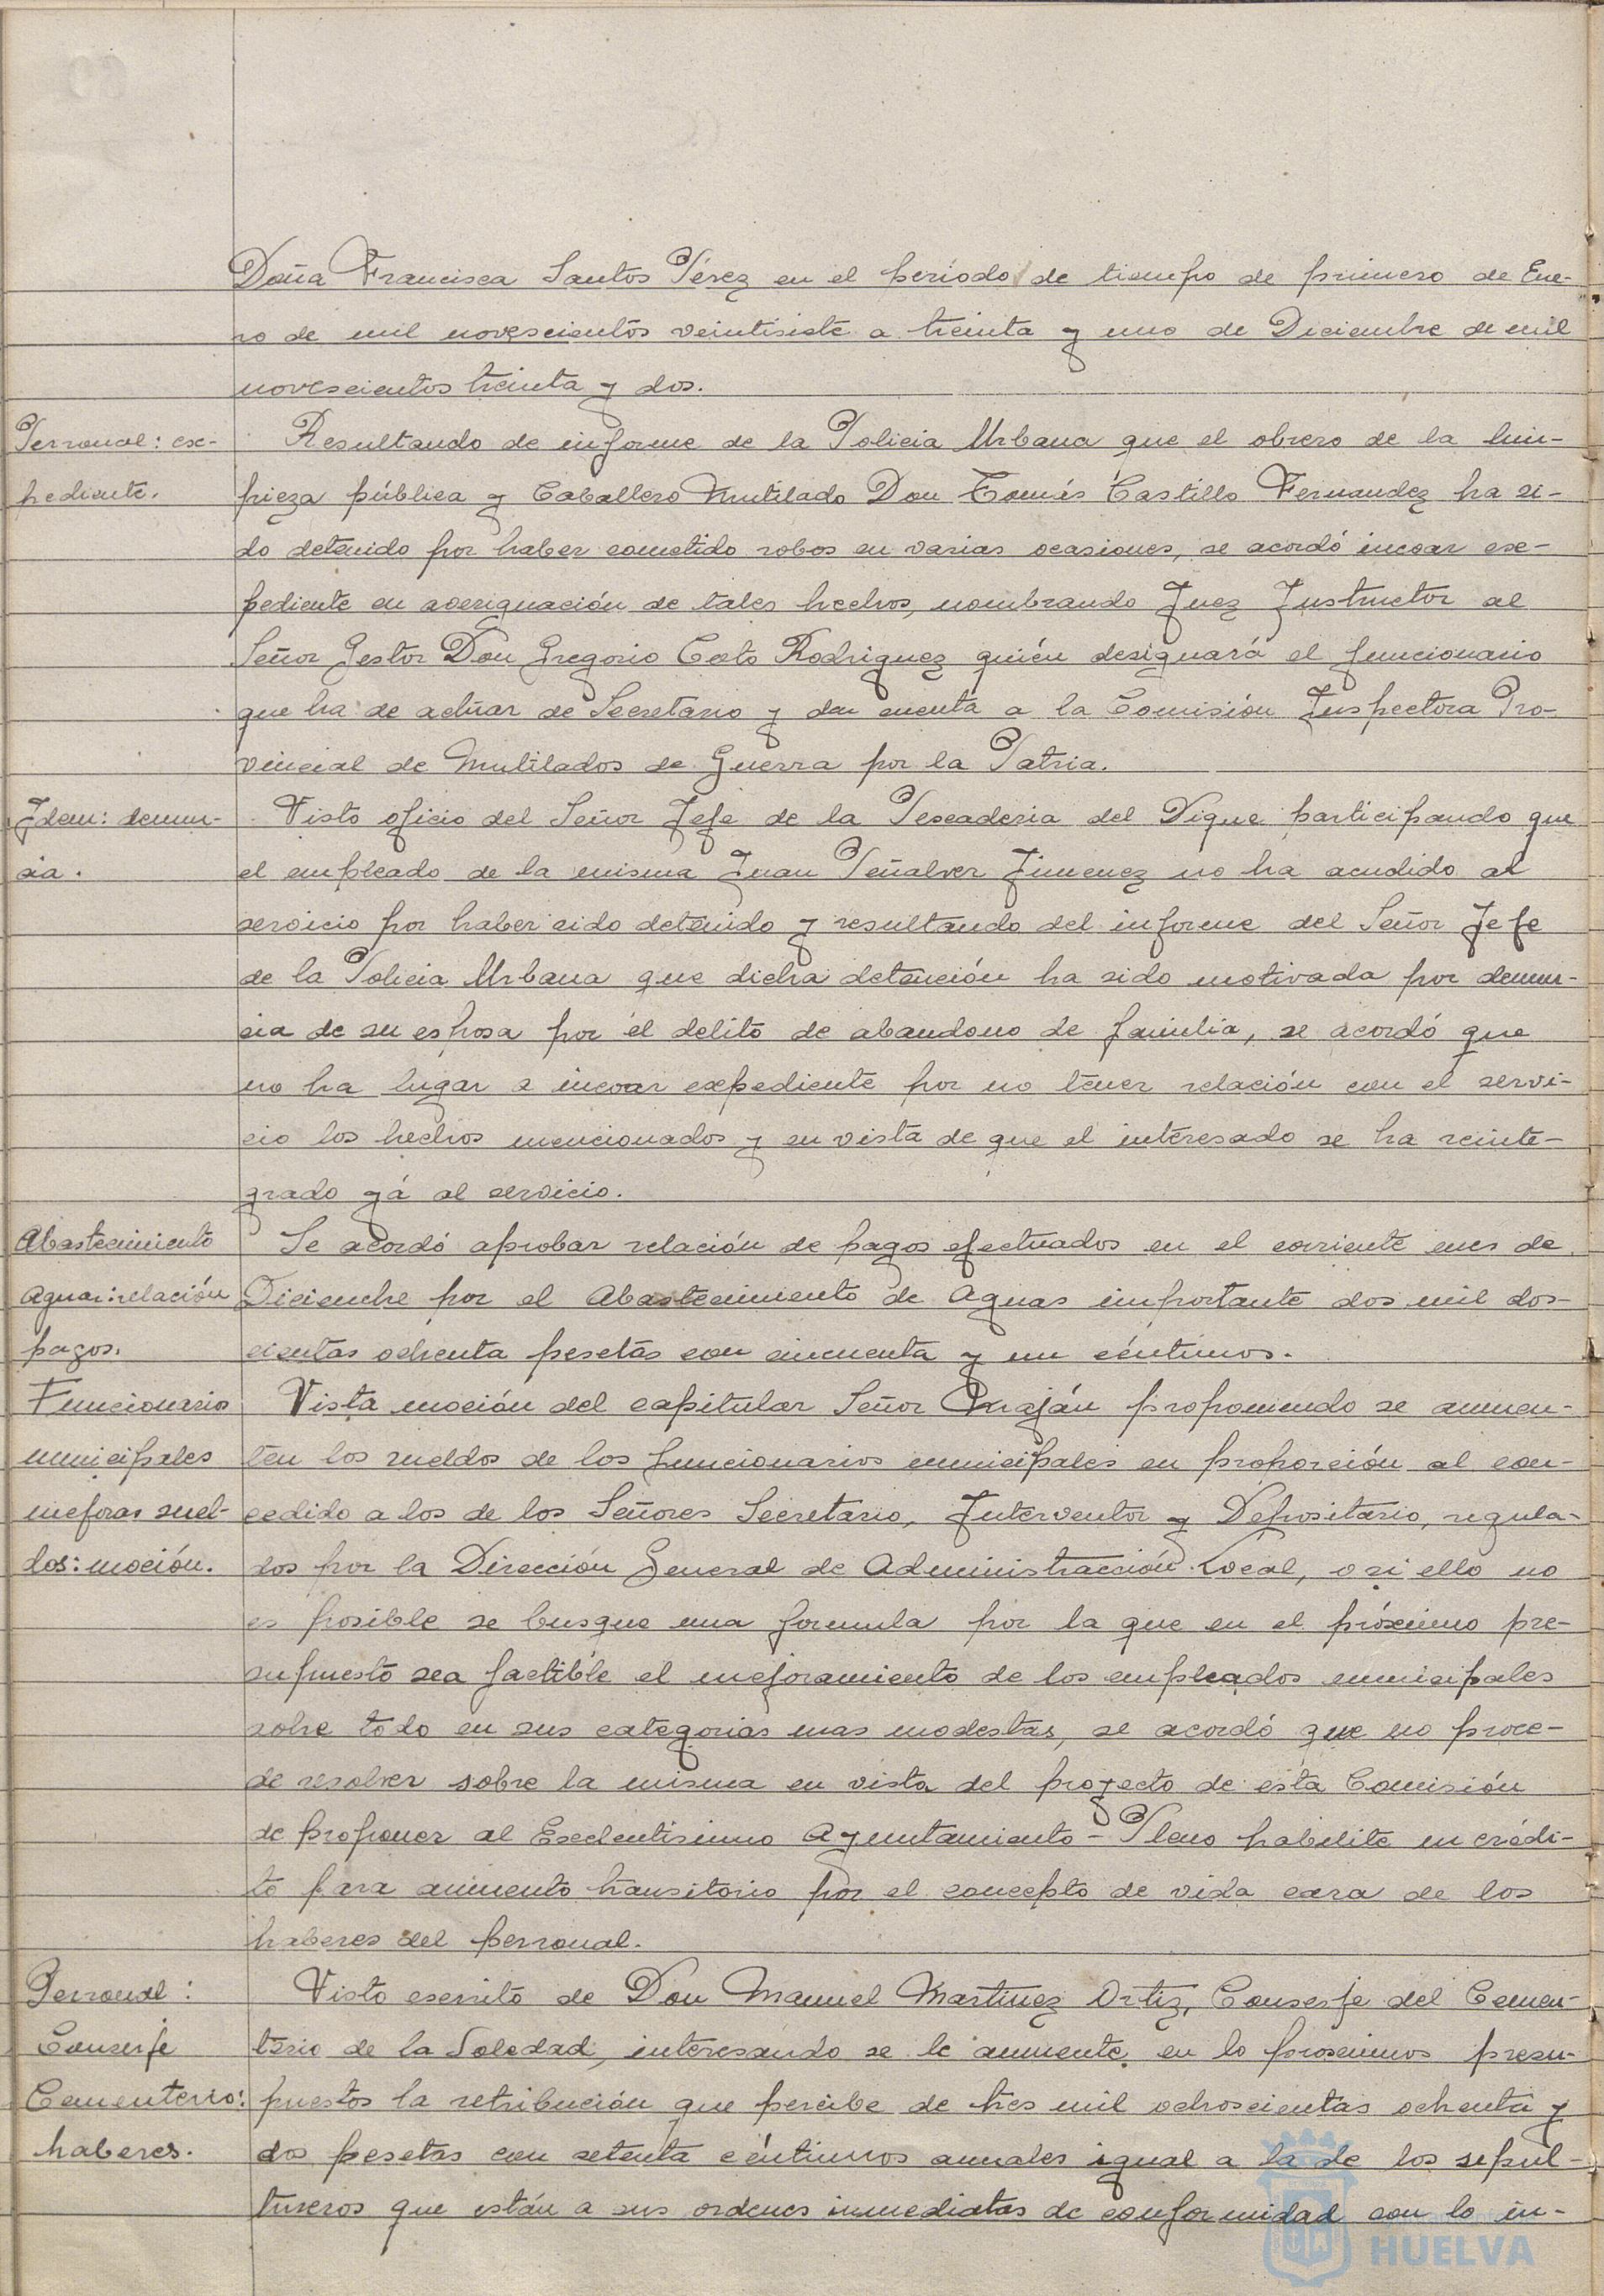 Doña Francisca Santos Pérez en el período de tiempo de primero de Ene-
ro de mil novescientos veintisiete a treinta y uno de Diciembre de mil
novescientos treinta y dos.
Personal: ex-
pediente.
Resultando de informe de la Policia Urbana que el obrero de la lim-
pieza pública y Caballero Mutilado Don Tomás Castillo Fernandez ha si-
do detenido por haber cometido robos en varias ocasiones, se acordó incoar ex-
pediente en averiguación de tales hechos, nombrando Juez Instructor al
Señor Gestor Don Gregorio Coto Rodriguez quién designará el funcionario
que ha de actuar de Secretario y dar cuenta a la Comisión Inspectora Pro-
vincial de Mutilados de Guerra por la Patria.
Idem: denun-
cia.
Visto oficio del Señor Jefe de la Pescaderia del Dique participando que
el empleado de la misma Juan Peñalver Jimenez no ha acudido al
servicio por haber sido detenido y resultando del informe del Señor Jefe
de la Policia Urbana que dicha detención ha sido motivada por denun-
cia de su esposa por el delito de abandono de familia, se acordó que
no ha lugar a incoar expediente por no tener relación con el servi-
cio los hechos mencionados y en vista de que el interesado se ha reinte-
grado yá al servicio.
Abastecimiento
Aguas: relación
pagos.
Se acordó aprobar relación de pagos efectuados en el corriente mes de
Diciembre por el Abastecimiento de Aguas importante dos mil dos-
cientas ochenta pesetas con cincuenta y un céntimos.
Funcionarios
municipales
mejoras suel-
dos: moción.
Vista moción del capitular Señor proponiendo se aumen-
ten los sueldos de los funcionarios municipales en proporción al con-
cedido a los de los Señores Secretario, Interventor y Depositario, regula-
dos por la Dirección General de Administración Local, o si ello no
es posible se busque una formula por la que en el próximo pre-
supuesto sea factible el mejoramiento de los empleados municipales
sobre todo en sus categorias mas modestas, se acordó que no proce-
de resolver sobre la misma en vista del proyecto de esta Comisión
de proponer al Excelentisimo Ayuntamiento-Pleno habilite un crédi-
to para aumento transitorio por el concepto de vida cara de los
haberes del personal.
Personal:
Conserje
Cementerio:
haberes.
Visto escrito de Don Manuel Martinez Ortiz, Conserje del Cemen-
terio de la Soledad, interesando se le aumente en lo proximos presu-
puestos la retribución que percibe de tres mil ochoscientas ochenta y
dos pesetas con setenta céntimos anuales igual a la de los sepul-
tureros que están a sus ordenes inmediatas de conformidad con lo in-
HUELVA